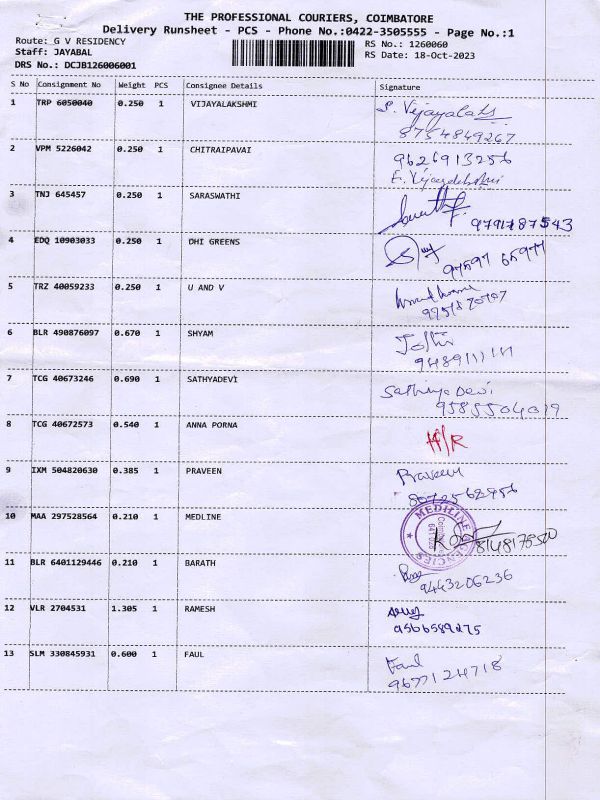 THE PROFESSIONAL COURIERS, COIMBATORE
Delivery Runsheet - PCS - Phone No.:0422-3505555 - Page No.:1
Route: G V RESIDENCY RS No.: 1260060
Staff: JAYABAL RS Date: 18-Oct-2023
DRS No.: DCJB126006001
S No Consignment No Weight PCS Consignee Details Signature
1 TRP 6050040 0.250 1 VIJAYALAKSHMI S. Vijayalaks
8754849267
2 VPM 5226042 0.250 1 CHITRAIPAVAI 9626913256
E. Vijayalakshmi
3 TNJ 645457 0.250 1 SARASWATHI 9791787543
4 EDQ 10903033 0.250 1 DHI GREENS 97597 65977
5 TRZ 40059233 0.250 1 U AND V
6 BLR 490876097 0.670 1 SHYAM Jothi
7 TCG 40673246 0.690 1 SATHYADEVI Sathiya Devi
9585504019
8 TCG 40672573 0.540 1 ANNA PORNA H/R
9 IXM 504820630 0.385 1 PRAVEEN Praveen
8072562956
10 MAA 297528564 0.210 1 MEDLINE MEDILINE AGENCIES
8148175500
11 BLR 6401129446 0.210 1 BARATH
9443206236
12 VLR 2704531 1.305 1 RAMESH
9566589275
13 SLM 330845931 0.600 1 FAUL Faul
9677124718